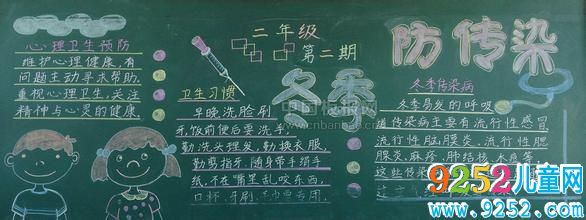 心理卫生预防
维护心理健康,有
问题主动寻求帮助.
重视心理卫生,关注
精神与心灵的健康.
二年级
第二期
卫生习惯
早晚洗脸刷
牙,饭前便后要洗手,
勤洗头理发,勤换衣服,
勤剪指甲.随身带手绢手
纸,不在嘴里乱咬东西,
口杯.牙刷
专用.
冬季
防传染
冬季传染病
冬季易发的呼吸
道传染病主要有流行性感冒
流行性脑膜炎,流行性腮
腺炎,麻疹,肺结核,水痘等
这些传染病
中国板报网
www.cnbanbao.cn
9252儿童网
www.9252.com